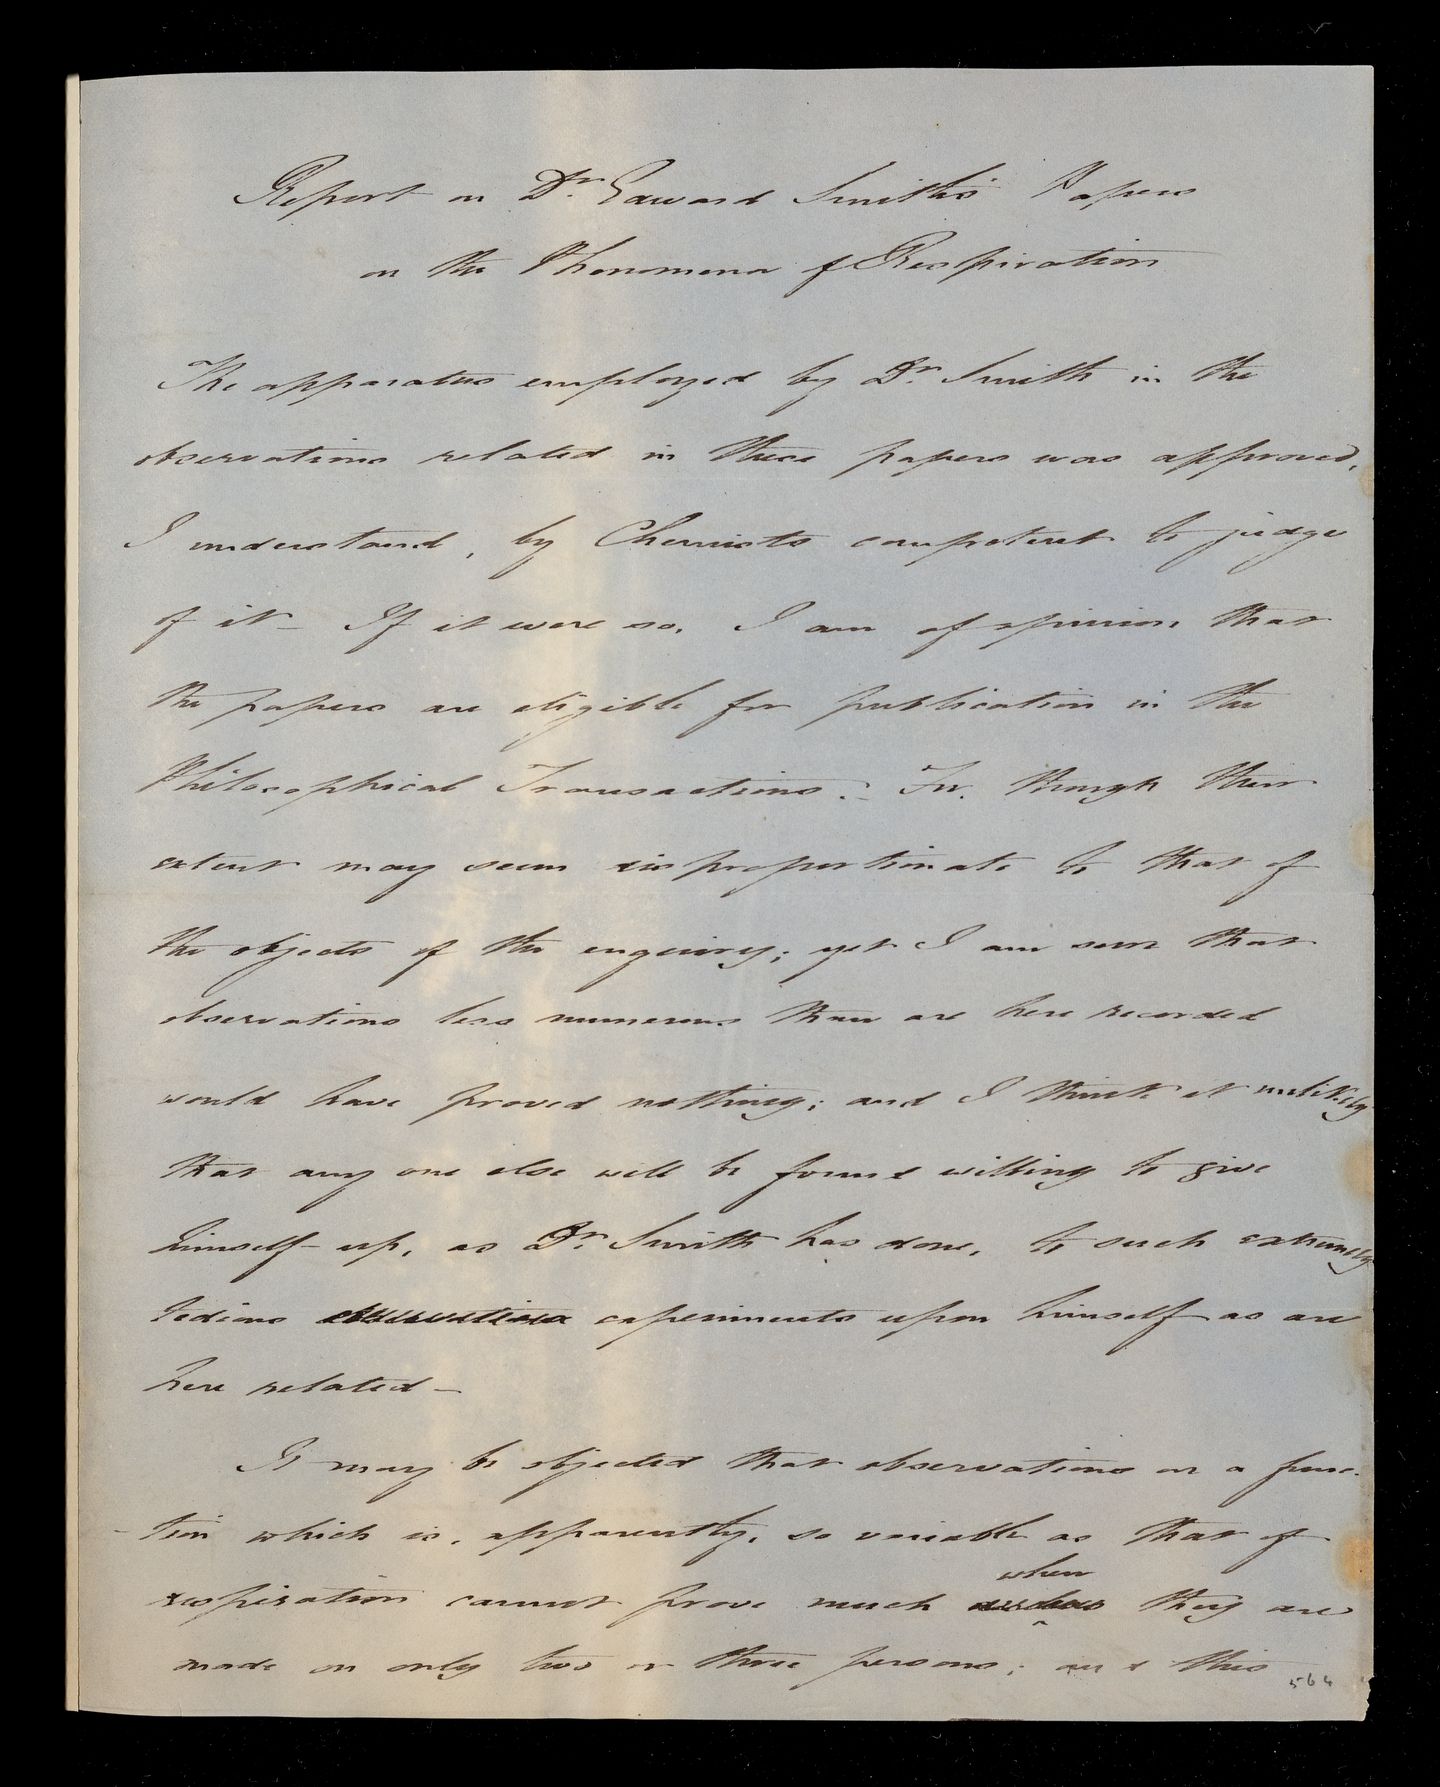 Report on Dr. Edward Smith's Papers
on the Phenomena of Respiration
The apparatus employed by Dr. Smith in the
observations related in these papers was approved,
I understand, by Chemists competent to judge
of it - If it were so, I am of opinion that
the papers are eligible for publication in the
Philosophical Transactions. - For, though their
extent may seem disproportionate to that of
the objects of the enquiry; yet I am sure that
observations less numerous than are here recorded
would have proved nothing; and I think it unlikely
that any one else will be found willing to give
himself up, as Dr. Smith has done, to such extremely
tedious experiments upon himself as are
here related -
It may be objected that observations on a func-
-tion which is, apparently, so variable as that of
when
respiration cannot prove much they are
made on only two or three persons; and this
564